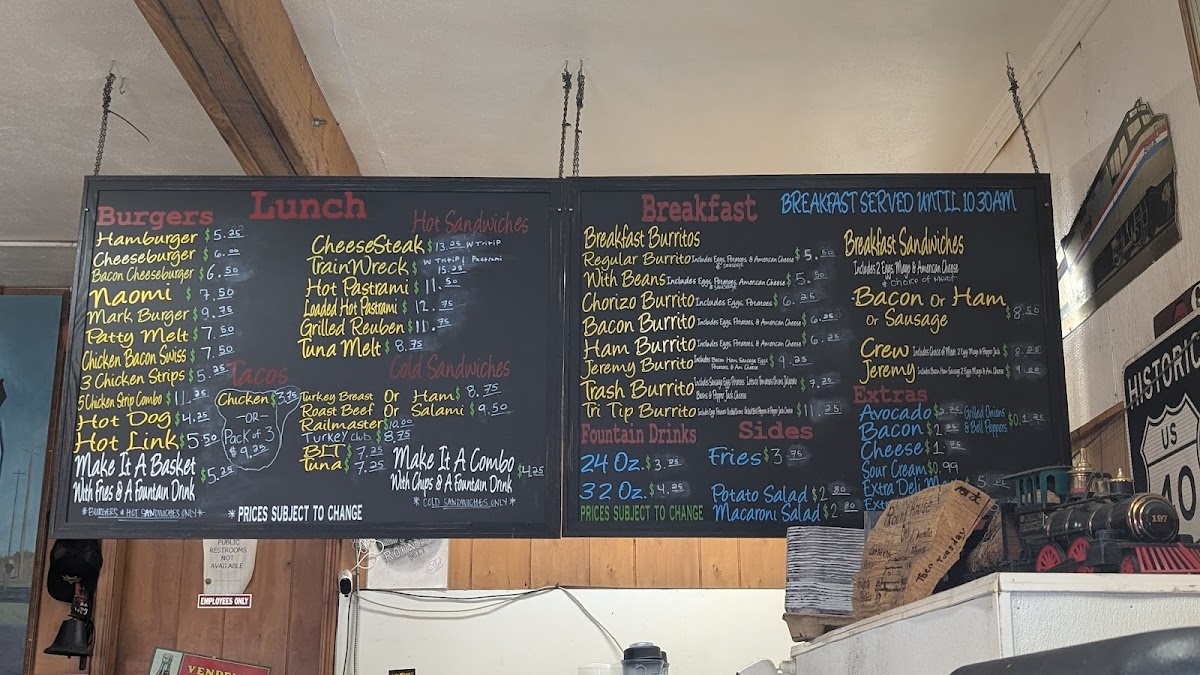 Lunch
Burgers
Hamburger $5.25
Cheeseburger $6.00
Bacon Cheeseburger $6.50
Naomi $7.50
Mark Burger $9.75
Patty Melt $7.50
Chicken Bacon Swiss $7.50
3 Chicken Strips $5.25
5 Chicken Strip Combo $11.25
Hot Dog $4.25
Hot Link $5.50
Make It A Basket $5.25
With Fries & A Fountain Drink
*BURGERS & HOT SANDWICHES ONLY*
Tacos
Chicken $3.75
-OR-
Pack of 3
$9.25
Hot Sandwiches
CheeseSteak $13.25 W Tritip
TrainWreck $15.25 W Tritip / Pastrami
Hot Pastrami $11.50
Loaded Hot Pastrami $12.75
Grilled Reuben $11.75
Tuna Melt $8.75
Cold Sandwiches
Turkey Breast Or Ham $8.75
Roast Beef Or Salami $9.50
Railmaster $10.00
Turkey Club $8.75
BLT $7.25
Tuna $7.25
Make It A Combo $4.25
With Chips & A Fountain Drink
*COLD SANDWICHES ONLY*
*PRICES SUBJECT TO CHANGE
Breakfast
BREAKFAST SERVED UNTIL 10:30AM
Breakfast Burritos
Regular Burrito Includes Eggs, Potatoes & American Cheese $5.50
& SAUSAGE
With Beans Includes Eggs, Potatoes, American Cheese $5.50
& SAUSAGE
Chorizo Burrito Includes Eggs, Potatoes $6.25
Bacon Burrito Includes Eggs, Potatoes, & American Cheese $6.25
Ham Burrito Includes Eggs, Potatoes, & American Cheese $6.25
Jeremy Burrito Includes Bacon Ham Sausage Eggs $9.25
Potatoes, & Am. Cheese
Trash Burrito Includes Sausage Eggs Potatoes Lettuce Tomatoes Onions Jalapeno $7.25
& Pepper Jack Cheese
Tri Tip Burrito $11.25
Breakfast Sandwiches
Includes 2 Eggs Mayo & American Cheese
*CHOICE OF MEAT
Bacon Or Ham
Or Sausage $8.50
Crew Includes Choice of Meat 2 Eggs Mayo & Pepper Jack $8.25
Jeremy Includes Bacon Ham Sausage 2 Eggs Mayo & Am. Cheese $9.00
Extras
Avocado $2.25
Bacon $2.25
Cheese $1.25
Sour Cream $0.99
Extra Deli
Grilled Onions
& Bell Peppers $0.75
Fountain Drinks
24 Oz. $3.75
32 Oz. $4.25
PRICES SUBJECT TO CHANGE
Sides
Fries $3.75
Potato Salad $2.80
Macaroni Salad $2.80
PUBLIC
RESTROOMS
NOT
AVAILABLE
EMPLOYEES ONLY
HISTORIC
US
40
197
Then Tuesday